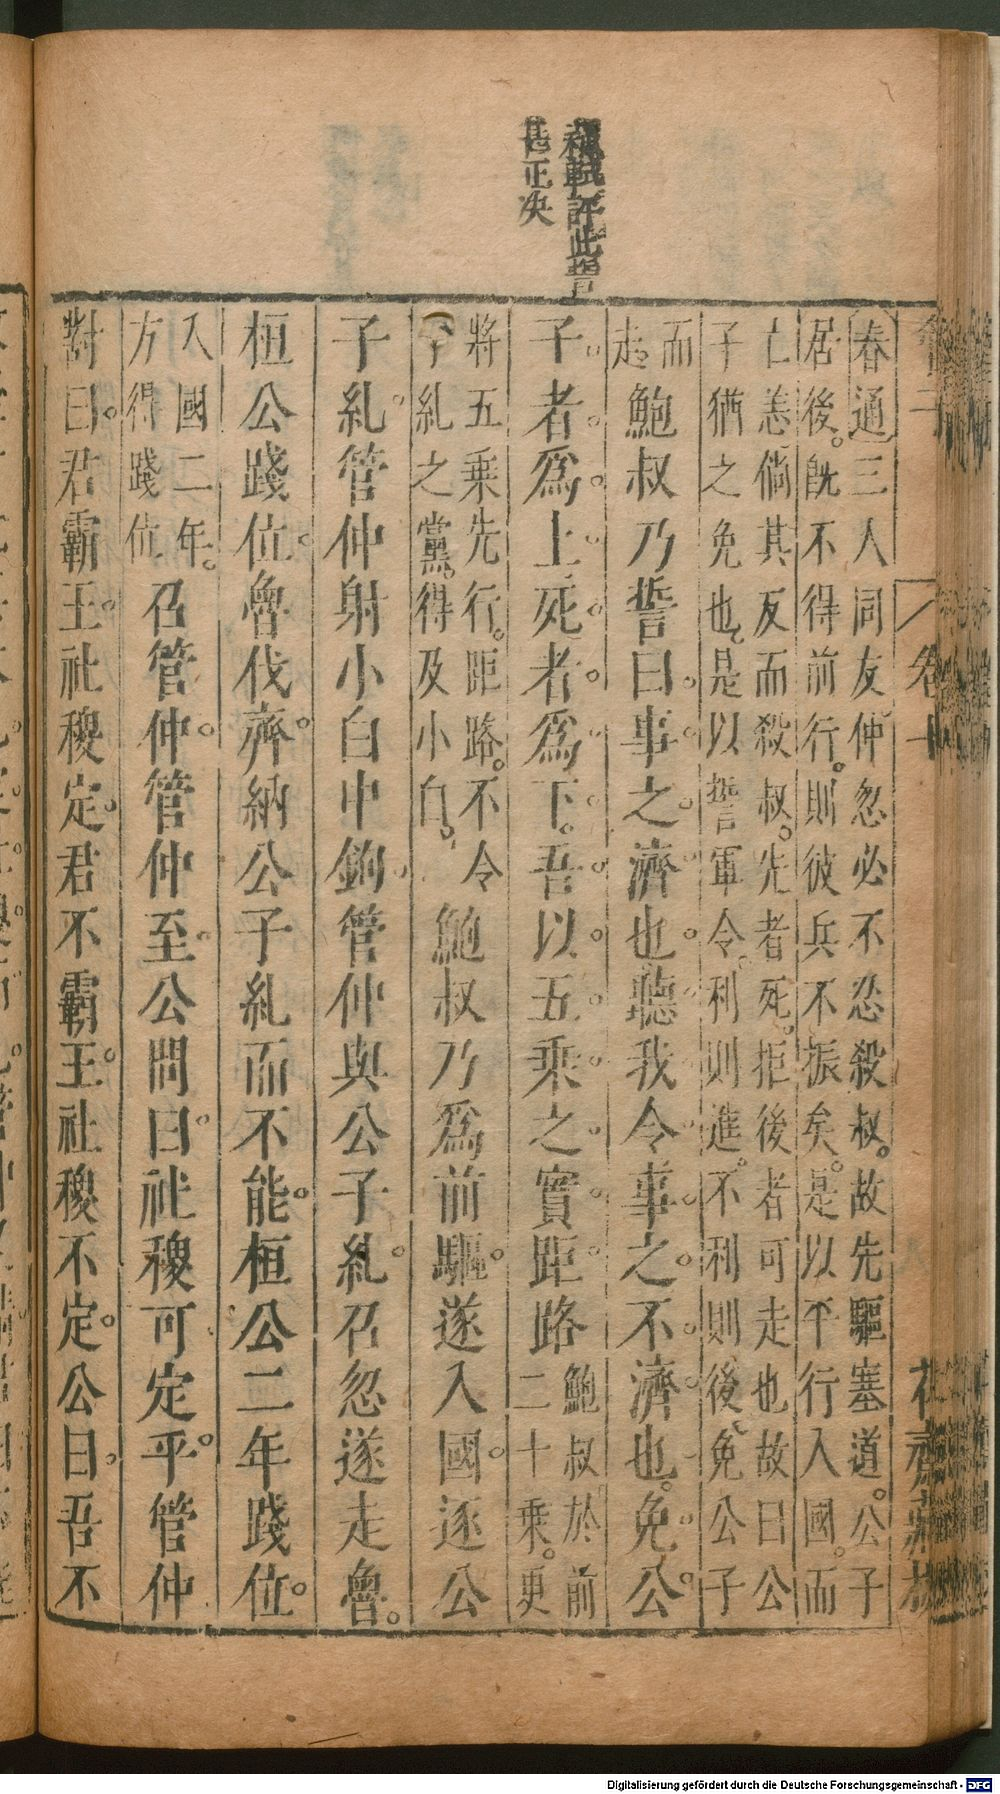 評此皆
正决
春通三人同友仲忽必不忍殺叔故先驅塞道公子
居後旣不得前行則彼兵不振矣是以平行入國而
亡恙倘其反而殺叔先者死拒後者可走也故曰公
子猶之免也是以誓軍令利則進不利則後免公子
而
走鮑叔乃誓曰事之濟也聽我令事之不濟也免公
子者爲上死者爲下吾以五乘之實距路鮑叔於前
二十乘更
將五乘先行距路不令
子糺之黨得及小白鮑叔乃爲前驅遂入國逐公
子糺管仲射小白中鉤管仲與公子糺召忽遂走魯
桓公踐位魯伐齊納公子糺而不能桓公二年踐位
入國二年
方得踐位召管仲管仲至公問曰社稷可定乎管仲
對曰君霸王社稷定君不霸王社稷不定公曰吾不
卷十
花齋藏板
Digitalisierung gefördert durch die Deutsche Forschungsgemeinschaft - DFG